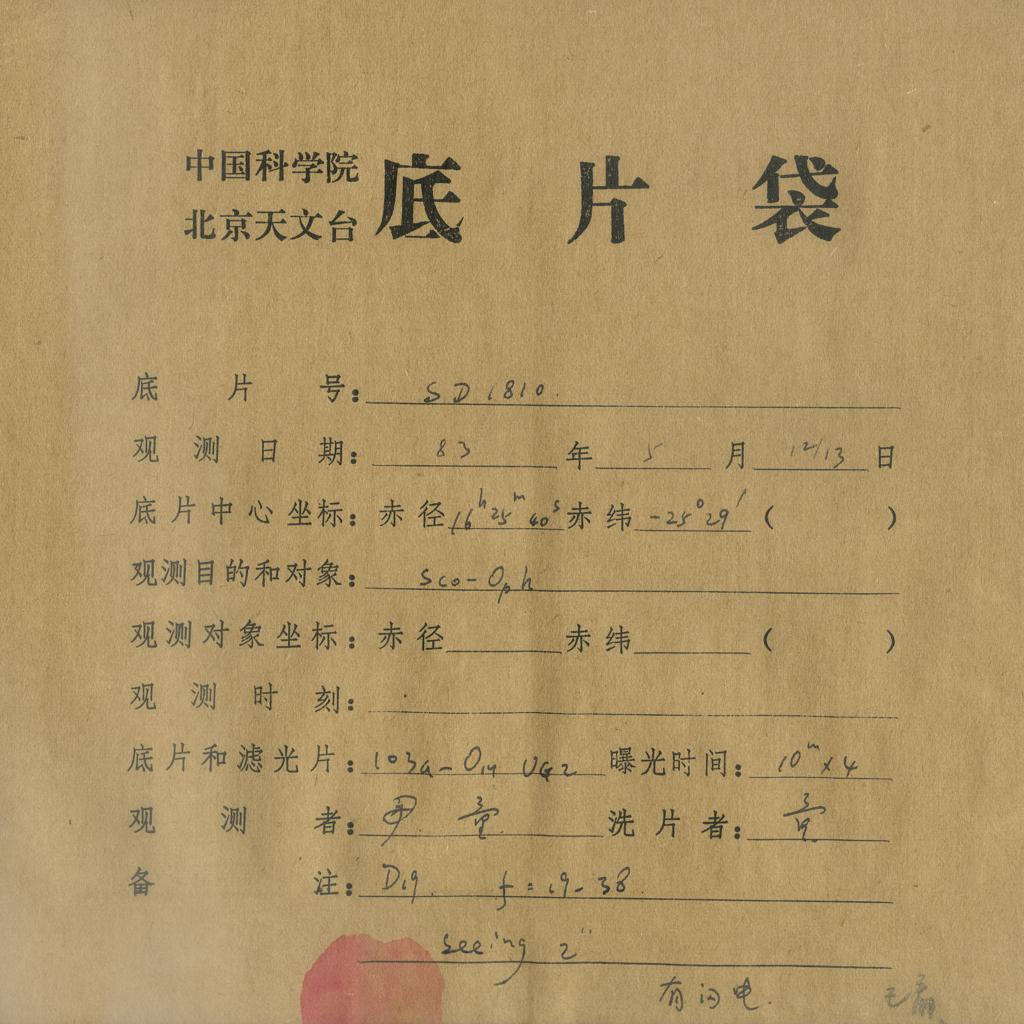 中国科学院
北京天文台 底片袋
底片号： SD 1810.
观测日期： 83 年 5 月 12/13 日
底片中心坐标：赤径 16h25m40s 赤纬 -25°29′ （ ）
观测目的和对象： Sco-Oph
观测对象坐标：赤径 赤纬 （ ）
观测时刻：
底片和滤光片： 103a-O UG2 曝光时间： 10m×4
观测者： 洗片者：
备注： D19. f=19-38.
seeing 2″
有闪电.